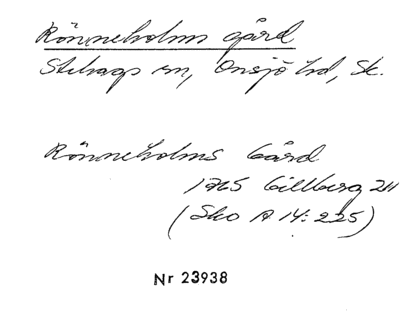 Rönneholms gård
Stehags sn, Onsjö hd, Sk.
Rönneholms Gård
1765 Gillberg 211
(Sko A 14: 225)
Nr 23938